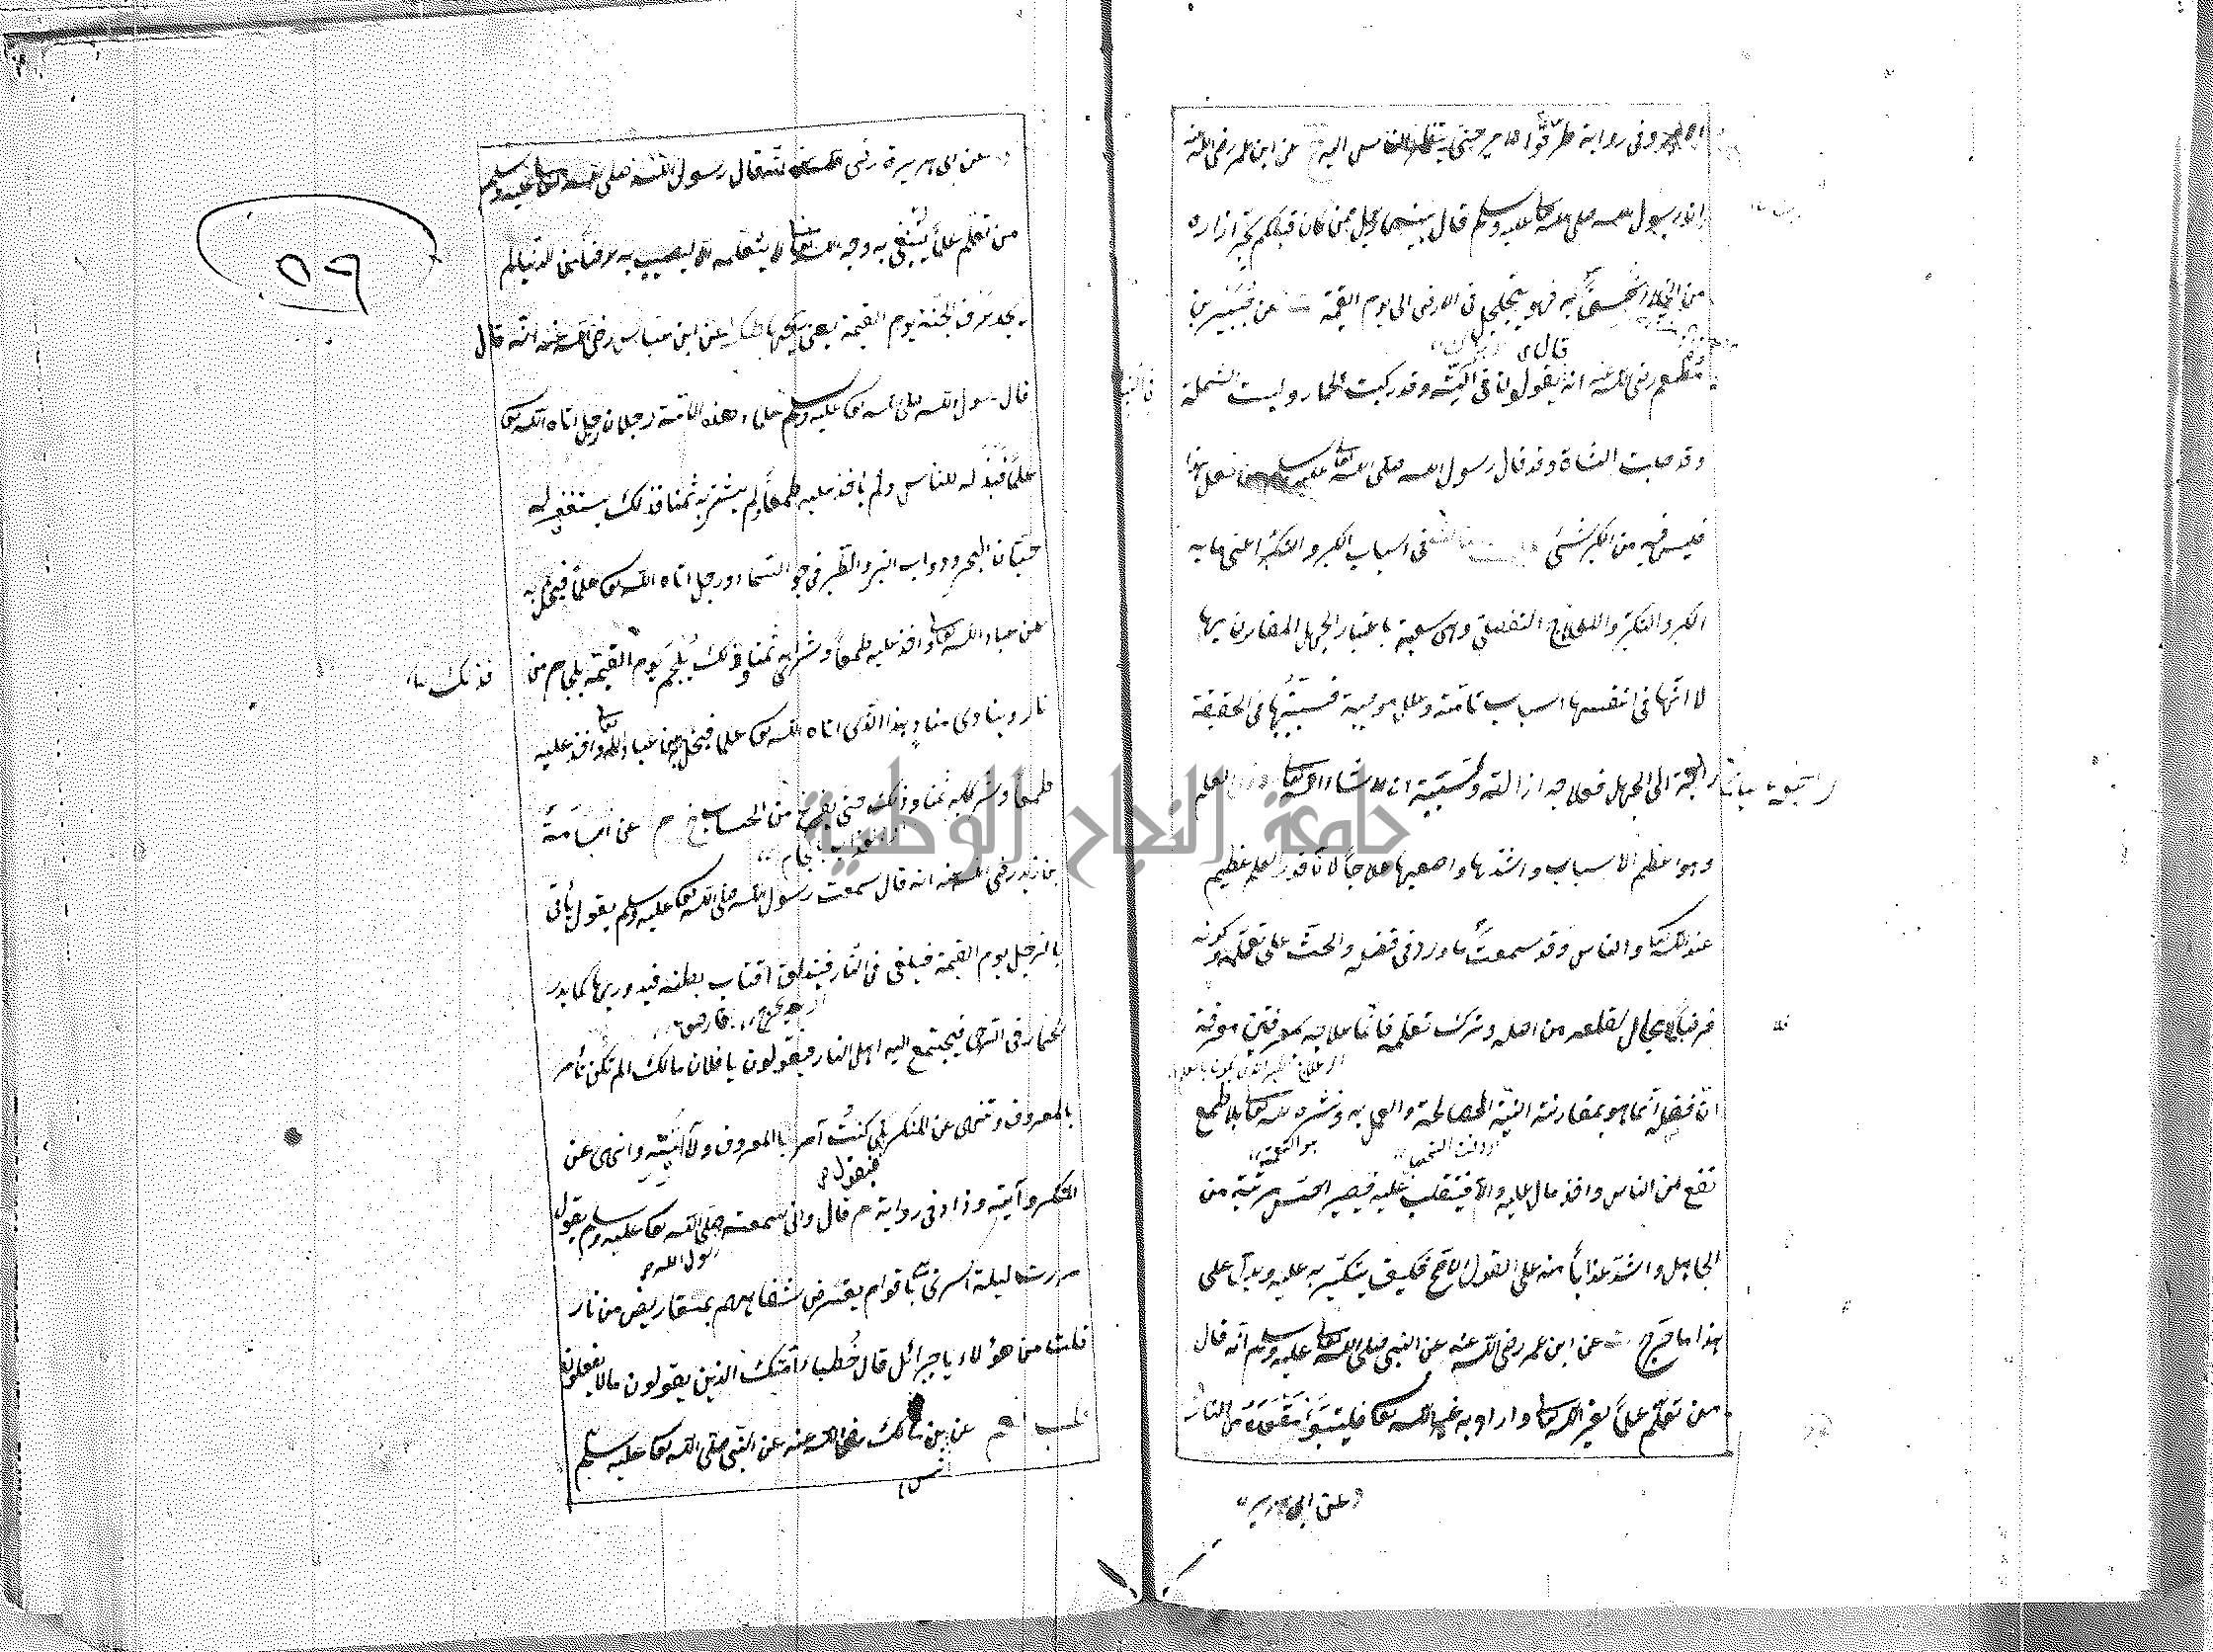 وفى رواية طرقوا للامير حتى ينظر الناس اليه عن ابن عمر رضى الله عنه
ان رسول الله صلى الله تعالى عليه وسلم قال بينما رجل ممن كان قبلكم يجر ازاره
من الخيلاء خسف به فهو يتجلجل فى الارض الى يوم القيمة ت عن جبير بن
قال
مطعم رضى الله عنه انه يقولون فى التيه وقد ركبت الحمار ولبست الشملة
وقد حلبت الشاة وقد قال رسول الله صلى الله تعالى عليه وسلم من فعل هذا
فليس فيه من الكبر شىء فى اسباب الكبر والتكبر اعنى ما به
الكبر والتكبر والعلاج التفصيلى وهى سبعة باعتبار الجهل المقارن بها
لا انها فى انفسها اسباب تامة وعلل موجبة فسببيتها فى الحقيقة
راجعة الى الجهل فعلاجه ازالته وسببية ان شاء الله تعالى العلم
وهو اعظم الاسباب واشدها واصعبها علاجا لان قدر العلم عظيم
عند الله تعالى والناس وقد سمعت ما ورد فى فضله والحث على تعلمه وكونه
فرضا فلا مجال لقلعه من اصله وترك تعلمه فانما علاجه بمعرفتين معرفة
ان فضله انما هو بمقارنة النية الصالحة والعمل به ونشره لله تعالى بلا طمع
نفع من الناس واخذ مال عليه والا فينقلب عليه فيصير اخس مرتبة من
الجاهل واشد عذابا منه على القول الاصح فكيف يتكبر به عليه ويدل على
هذا ما خرج ت عن ابن عمر رضى الله عنه عن النبى صلى الله تعالى عليه وسلم انه قال
من تعلم علما لغير الله تعالى او اراد به غير الله تعالى فليتبوأ مقعده من النار
عن ابى هريره
عن ابى هريرة رضى الله عنه انه قال رسول الله صلى الله تعالى عليه وسلم
من تعلم علما يبتغى به وجه الله تعالى لا يتعلمه الا ليصيب به عرضا من الدنيا لم
يجد عرف الجنة يوم القيمة يعنى ريحها طك عن ابن عباس رضى الله عنه انه قال
قال رسول الله صلى الله تعالى عليه وسلم علماء هذه الامة رجلان رجل اتاه الله تعالى
علما فبذله للناس ولم ياخذ عليه طمعا ولم يشتر به ثمنا فذلك يستغفر له
حيتان البحر ودواب البر والطير فى جو السماء ورجل اتاه الله تعالى علما فبخل به
عن عباد الله تعالى واخذ عليه طمعا وشرا به ثمنا وذلك يلجم يوم القيمة بلجام من
فذلك
نار وينادى مناد هذا الذى اتاه الله تعالى علما فبخل به عن عباد الله تعالى واخذ عليه
طمعا وشرا به ثمنا وذلك حتى يفرغ من الحساب خ م عن اسامة
بن زيد رضى الله عنه انه قال سمعت رسول الله صلى الله تعالى عليه وسلم يقول يأتى
بالرجل يوم القيمة فيلقى فى النار فيندلق اقتاب بطنه فيدور بها كما يدور
الحمار فى الرحى فيجتمع اليه اهل النار فيقولون يا فلان مالك الم تكن تأمر
بالمعروف وتنهى عن المنكر كنت آمر بالمعروف ولا آتيه وانهى عن
فيقول
المنكر وآتيه وزاد فى رواية م قال وانى سمعته صلى الله تعالى عليه وسلم يقول
رسول الله
مررت ليلة اسرى بى باقوام يقرض شفاههم بمقاريض من نار
قلت من هؤلاء يا جبرائل قال خطباء امتك الذين يقولون ما لا يفعلون
طب عن بن مالك رضى الله عنه عن النبى صلى الله تعالى عليه وسلم
انس
٥٩
جامعة النجاح الوطنية